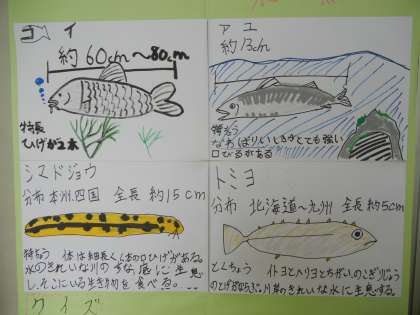 コイ
約60cm〜80cm
特長
ひげが2本
アユ
約13cm
特ちょう
なわばりいしきがとても強い
口びるがある
シマドジョウ
分布 本州、四国 全長 約15cm
特ちょう 体は細長く6本の口ひげがある。
水のきれいな川のすな底に生息
し、そこにいる生き物を食べる。
トミヨ
分布 北海道〜九州 全長 約5cm
とくちょう イトヨとハリヨとちがい、のこぎりじょう
のとげがならぶ。川岸のきれいな水に生息する。
クイズ